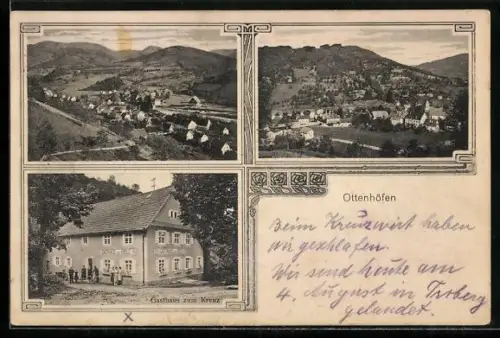 Ottenhöfen
Beim Kreuzwirt haben
wir geschlafen.
Wir sind heute am
4. August in
gelandet.
Gasthaus zum Kreuz
X